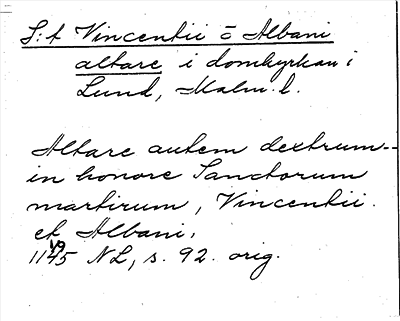 S:t Vincentii o Albani
altare i domkyrkan i
Lund, Malm. l.
Altare autem dextrum--
in honore Sanctorum
martirum, Vincentii.
et Albani,
1145 NL, s. 92. orig.